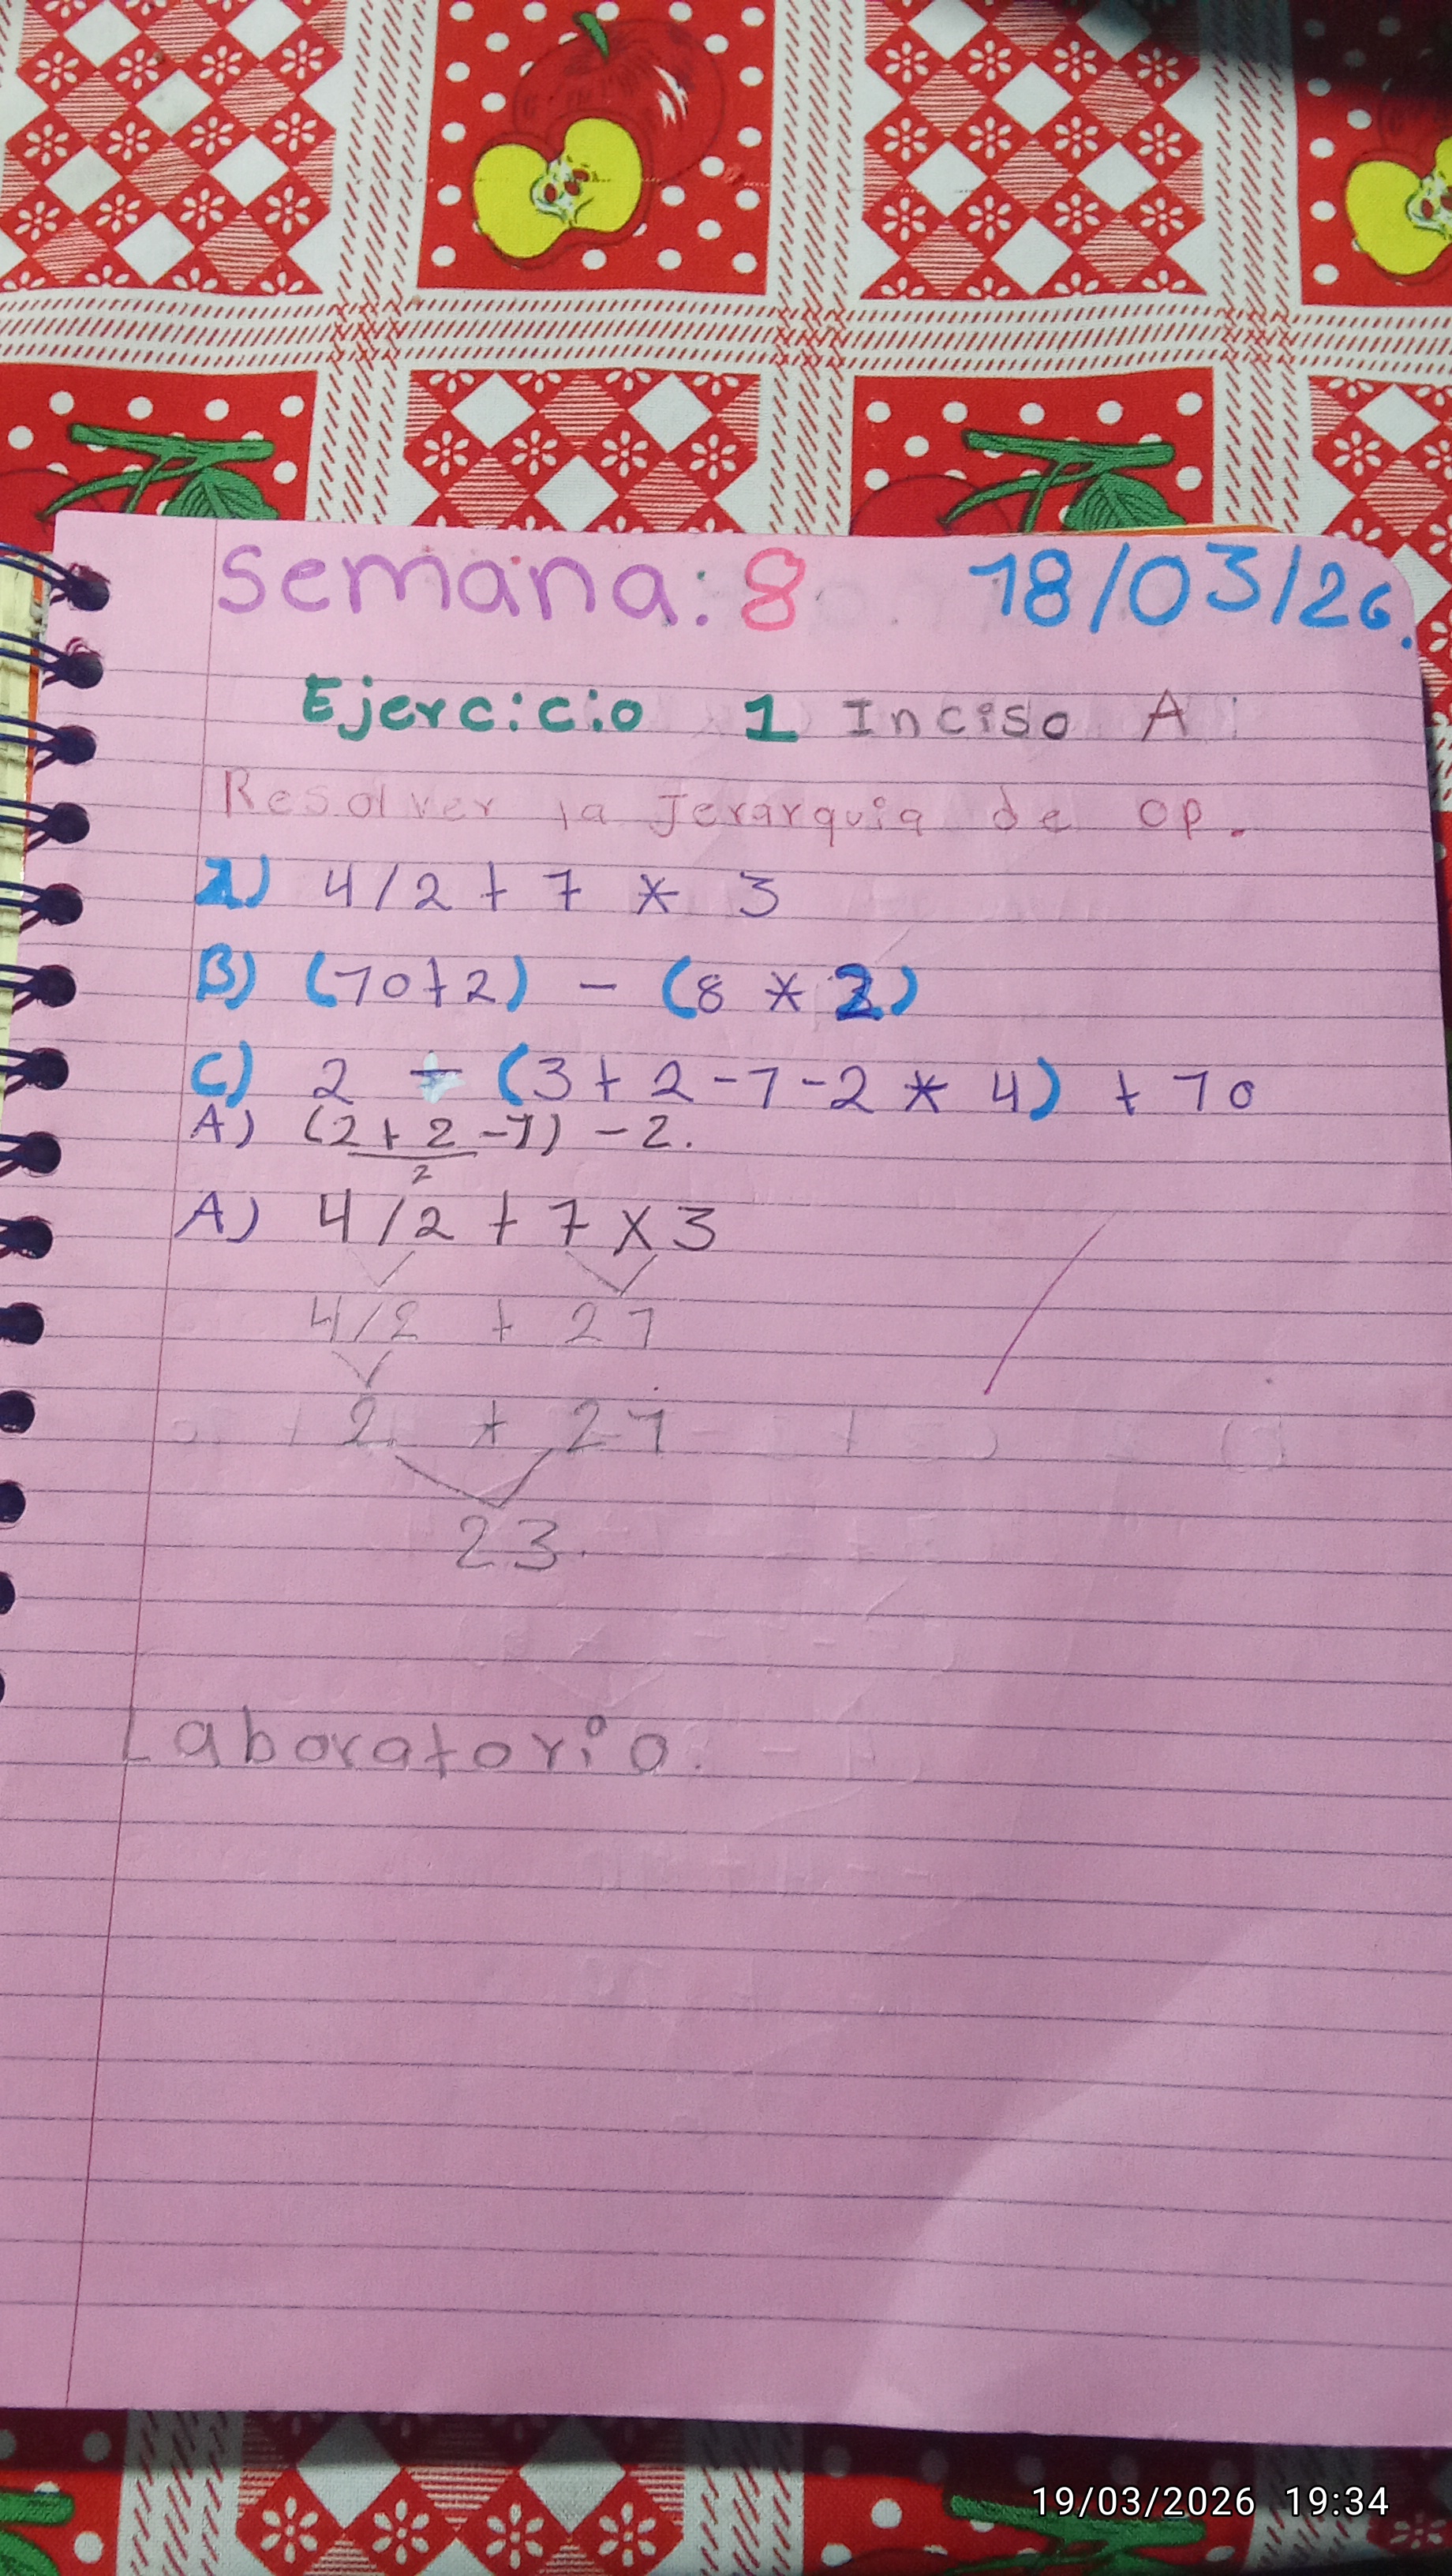 semana: 8 18/03/26.
Ejercicio 1 Inciso A
Resolver la Jerarquia de op.
A) 4/2 + 7 * 3
B) (10+2) - (8 * 2)
C) 2 + (3+2-1-2 * 4) + 10
A) (2+2-1) -2.
2
A) 4/2 + 7 x 3
4/2 + 21
2 + 21
23.
Laboratorio.
19/03/2026 19:34